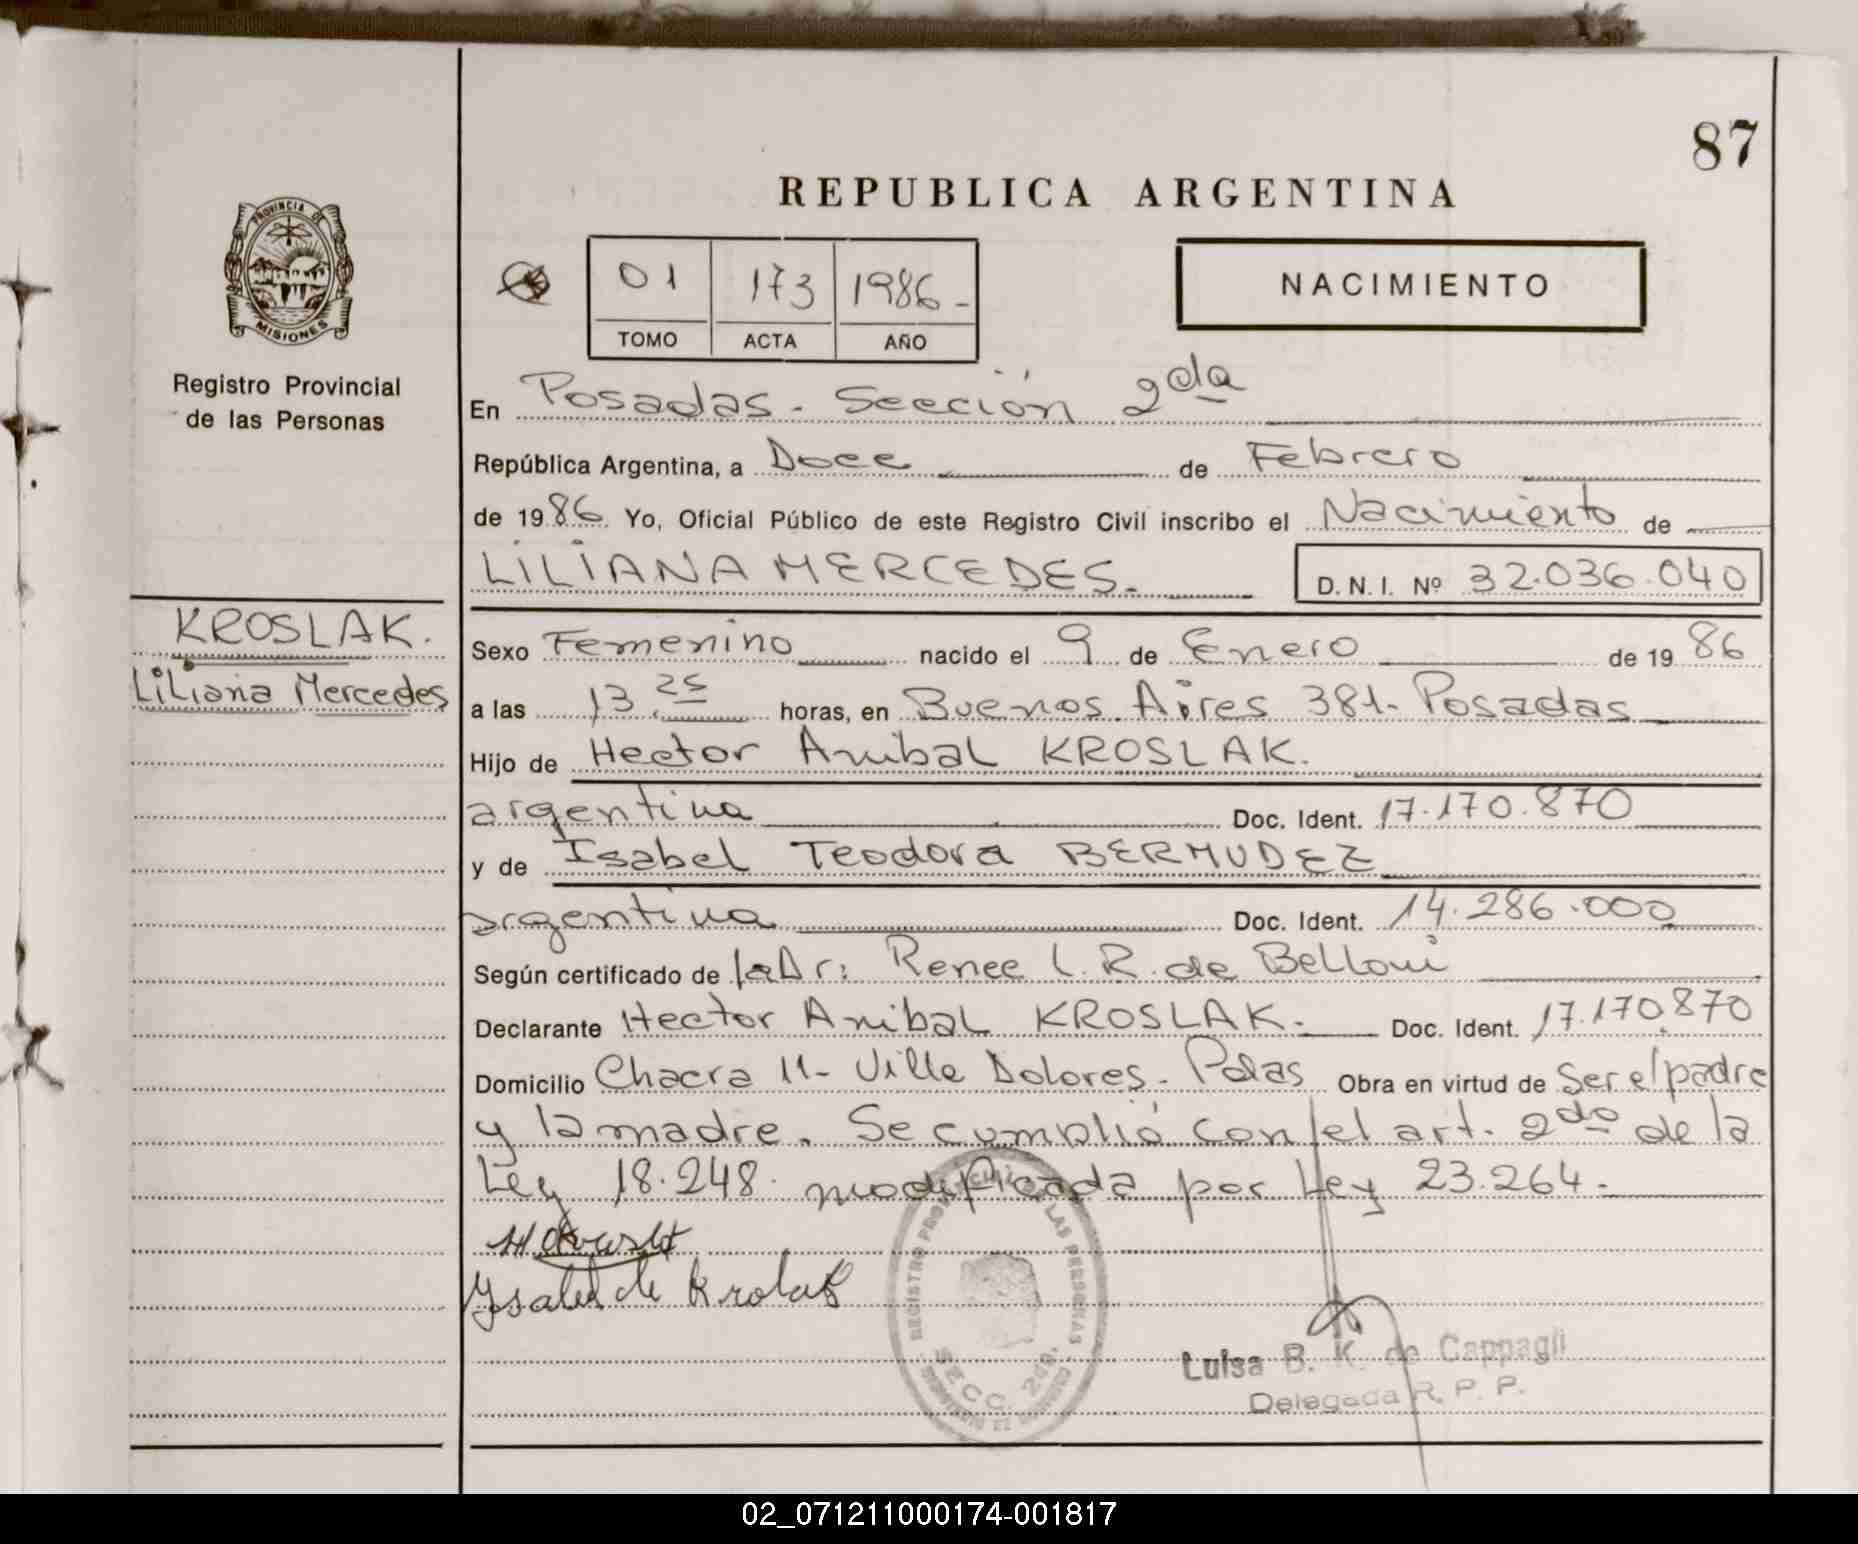 87
REPUBLICA ARGENTINA
PROVINCIA DE
MISIONES
Registro Provincial
de las Personas
01 173 1986-
TOMO ACTA AÑO
NACIMIENTO
En Posadas. Sección 2da
República Argentina, a Doce de Febrero
de 1986. Yo, Oficial Público de este Registro Civil inscribo el Nacimiento de
LILIANA MERCEDES.
D. N. I. Nº 32.036.040
KROSLAK.
Liliana Mercedes
Sexo Femenino nacido el 9 de Enero de 1986
a las 13,25 horas, en Buenos Aires 381- Posadas
Hijo de Hector Anibal KROSLAK.
argentina Doc. Ident. 17.170.870
y de Isabel Teodora BERMUDEZ
argentina Doc. Ident. 14.286.000
Según certificado de la Dr: Renee L. R. de Belloni
Declarante Hector Anibal KROSLAK. Doc. Ident. 17.170.870
Domicilio Chacra 11- Villa Dolores. Pdas Obra en virtud de Ser el padre
y la madre. Se cumplió con el art. 2do de la
Ley 18.248. modificada por Ley 23.264.
Ysabel de Krolak
REGISTRO PROVINCIAL DE LAS PERSONAS
SECC. 2da.
Luisa B. K. de Cappagli
Delegada R. P. P.
02_071211000174-001817